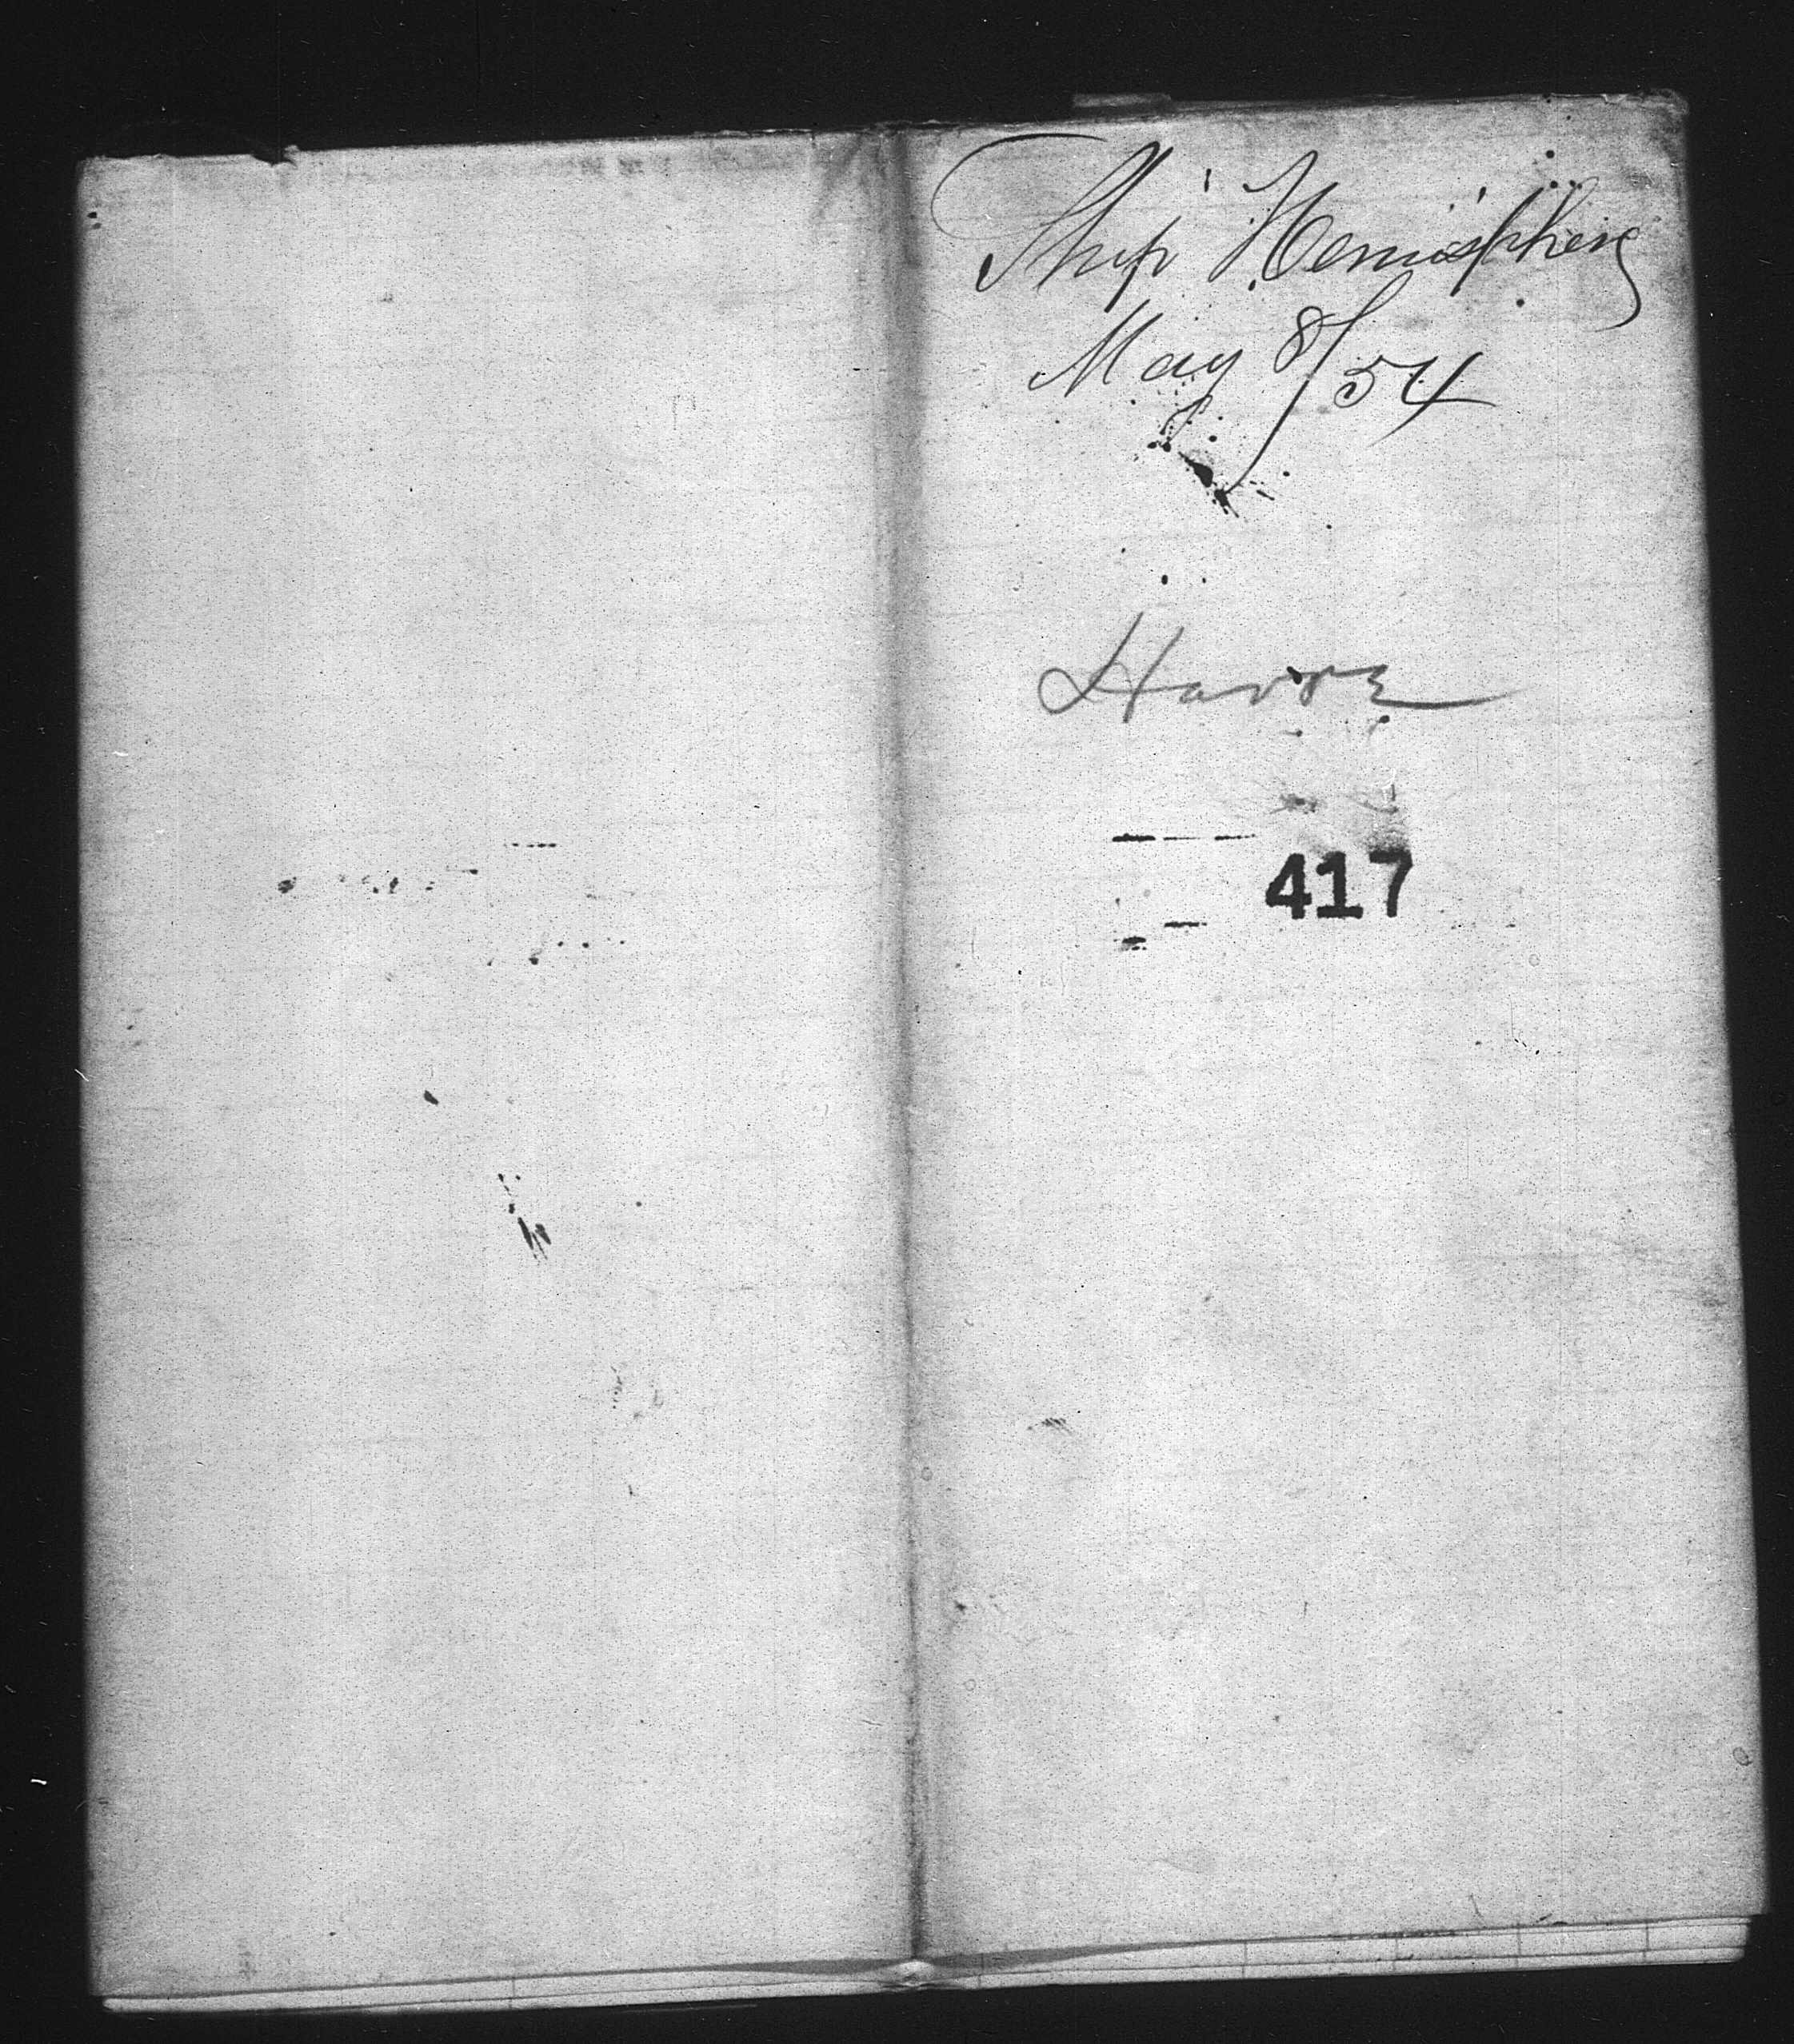 Ship Hemisphere
May 8/54
Havre
417